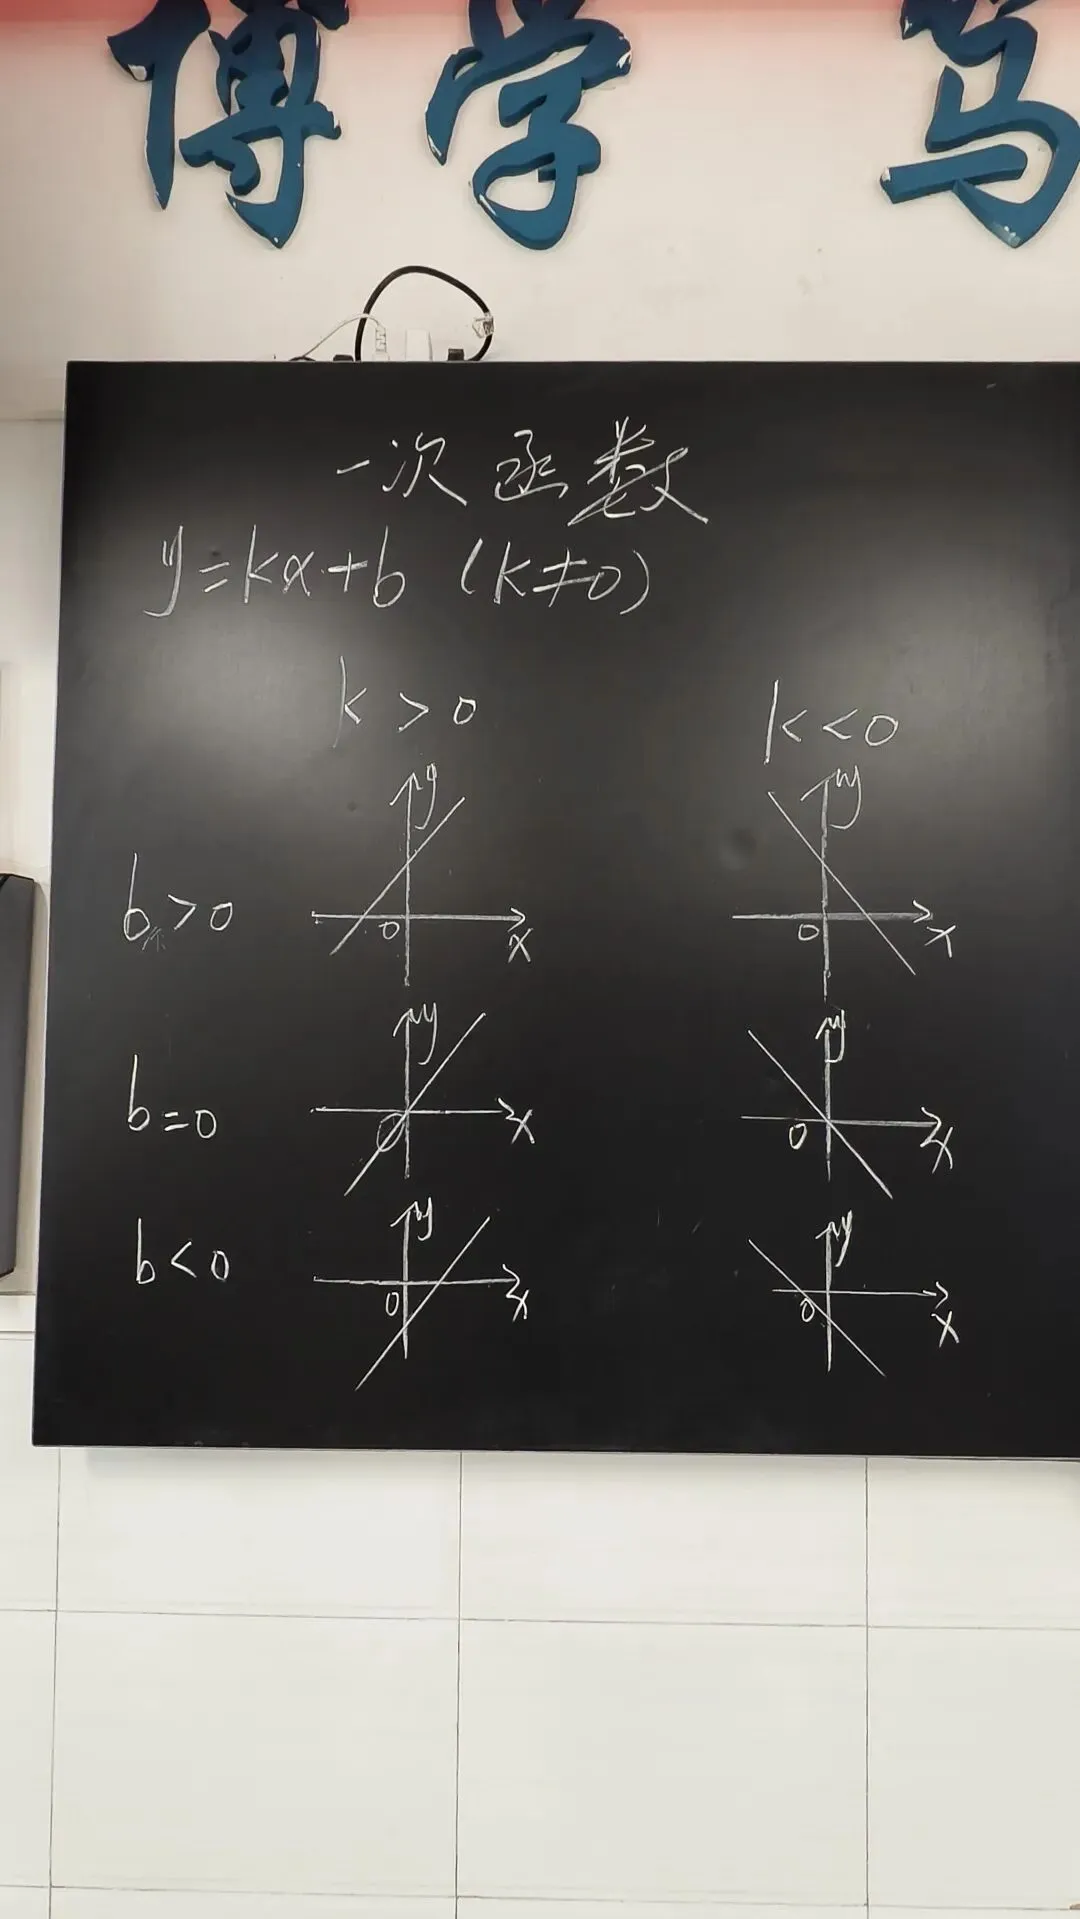 博学 笃
一次函数
y=kx+b (k≠0)
k>0 k<0
y y
b>0 0 x 0 x
y y
b=0 0 x 0 x
y y
b<0 0 x 0 x